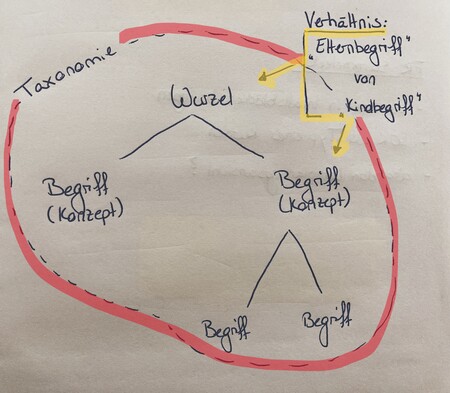 Taxonomie
Verhältnis:
"Elternbegriff"
von
Kindbegriff"
Wurzel
Begriff
(Konzept)
Begriff
(Konzept)
Begriff
Begriff